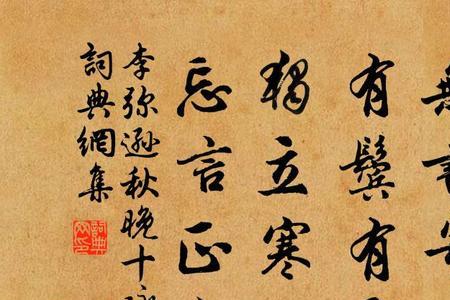 無言
有鬓有
獨立寒
忘言正
李弥遜秋晚十
詞典網集
詞典